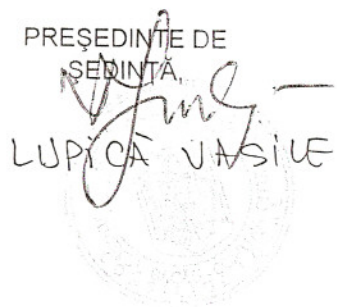 PREŞEDINTE DE
ŞEDINŢĂ,
LUPICĂ VASILE